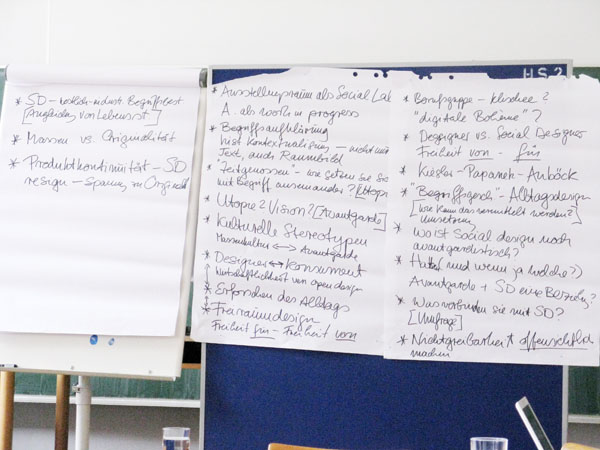 * SD – westlich-industr. Begriffsbest.
[Angleichg. von Lebensst.]
* Massen vs. Originalität
* Produktkontinuität – SD
resign – Spanng. zu Original
* Ausstellungsraum als Social Lab
A. als work in progress
* Begriffsaufklärung
hist. Kontextualisierg. – nicht nur
Text, auch Raumbild
* "Zeitgenossen" – wie setzen sie sich
mit Begriff auseinander? [Utopie
* Utopie? Vision? [Avantgarde]
* Kulturelle Stereotypen
Massenkultur <-> Avantgarde
* Designer <-> Konsument
Wirtschaftlichkeit von open design
* Erforschen des Alltags
* Freiraumdesign
Freiheit für – Freiheit von
HS 2
* Berufsgruppe – Klischee?
"digitale Bohème"?
* Designer vs. Social Designer
Freiheit von – für
* Kiesler – Papanek – Auböck
* "Begriffsgesch." – Alltagsdesign
[Wie kann das vermittelt werden?]
Umsetzung
* Wo ist Social design noch
avantgardistisch?
* Hat (und wenn ja welche?)
Avantgarde + SD eine Beziehg.?
* Was verbinden sie mit SD?
[Umfrage]
* Nichtgreifbarkeit offensichtlich
machen